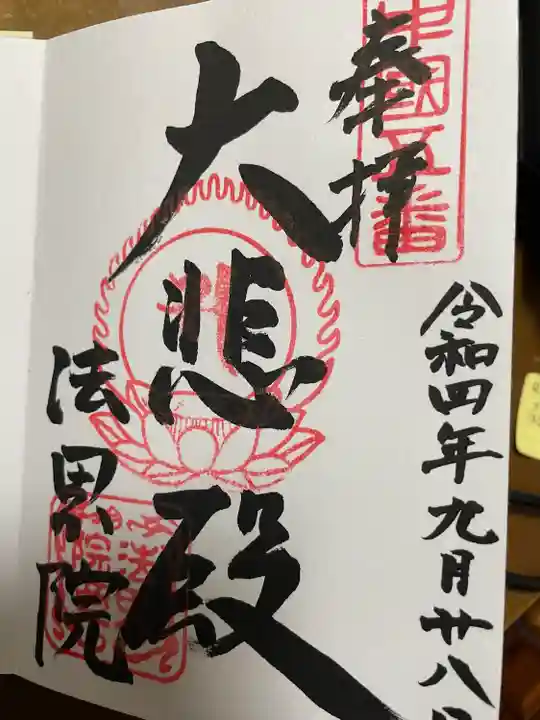 中國五番
奉拝
令和四年九月廿八日
大悲殿
法界院